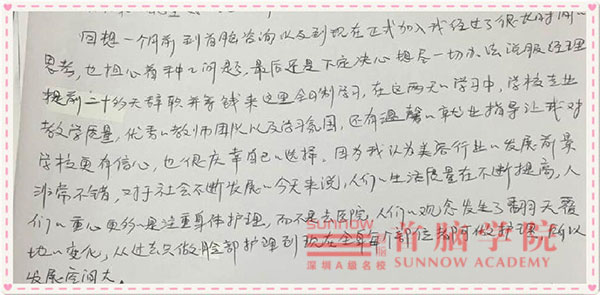 回想一个月前到首脑咨询以及到现在正式加入我经过了很长时间的
思考,也担心着种种问题,最后还是下定决心想尽一切办法说服经理
提前二十多天辞职并寄钱来这里全日制学习,在这两天的学习中,学校专业
教学质量,优秀的教师团队以及学习氛围,还有温馨的就业指导让我对
学校更有信心,也很庆幸自己的选择。因为我认为美容行业的发展前景
非常不错,对于社会不断发展的今天来说,人们的生活质量在不断提高,人
们的重心更多的是注重身体护理,而不是去医院,人们的观念发生了翻天覆
地的变化,从过去只做脸部护理到现在全身每个部位都可做护理,所以
发展空间大。
SUNNOW
深圳A级名校
首脑学院
SUNNOW ACADEMY